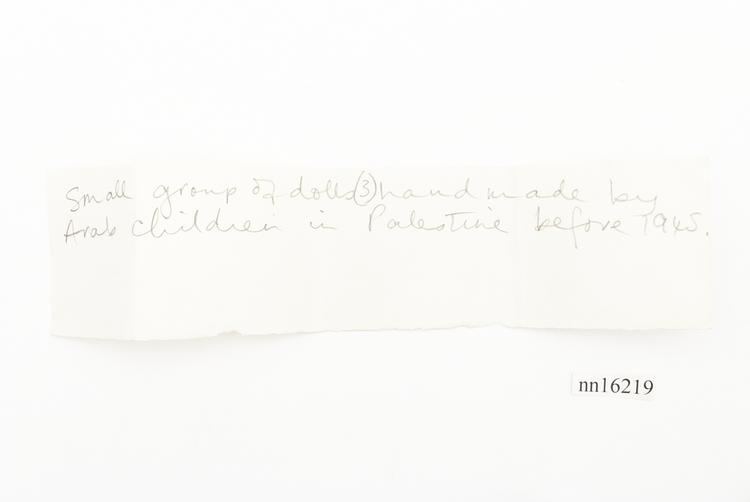 Small group of dolls (3) handmade by
Arab children in Palestine before 1945.
nn16219